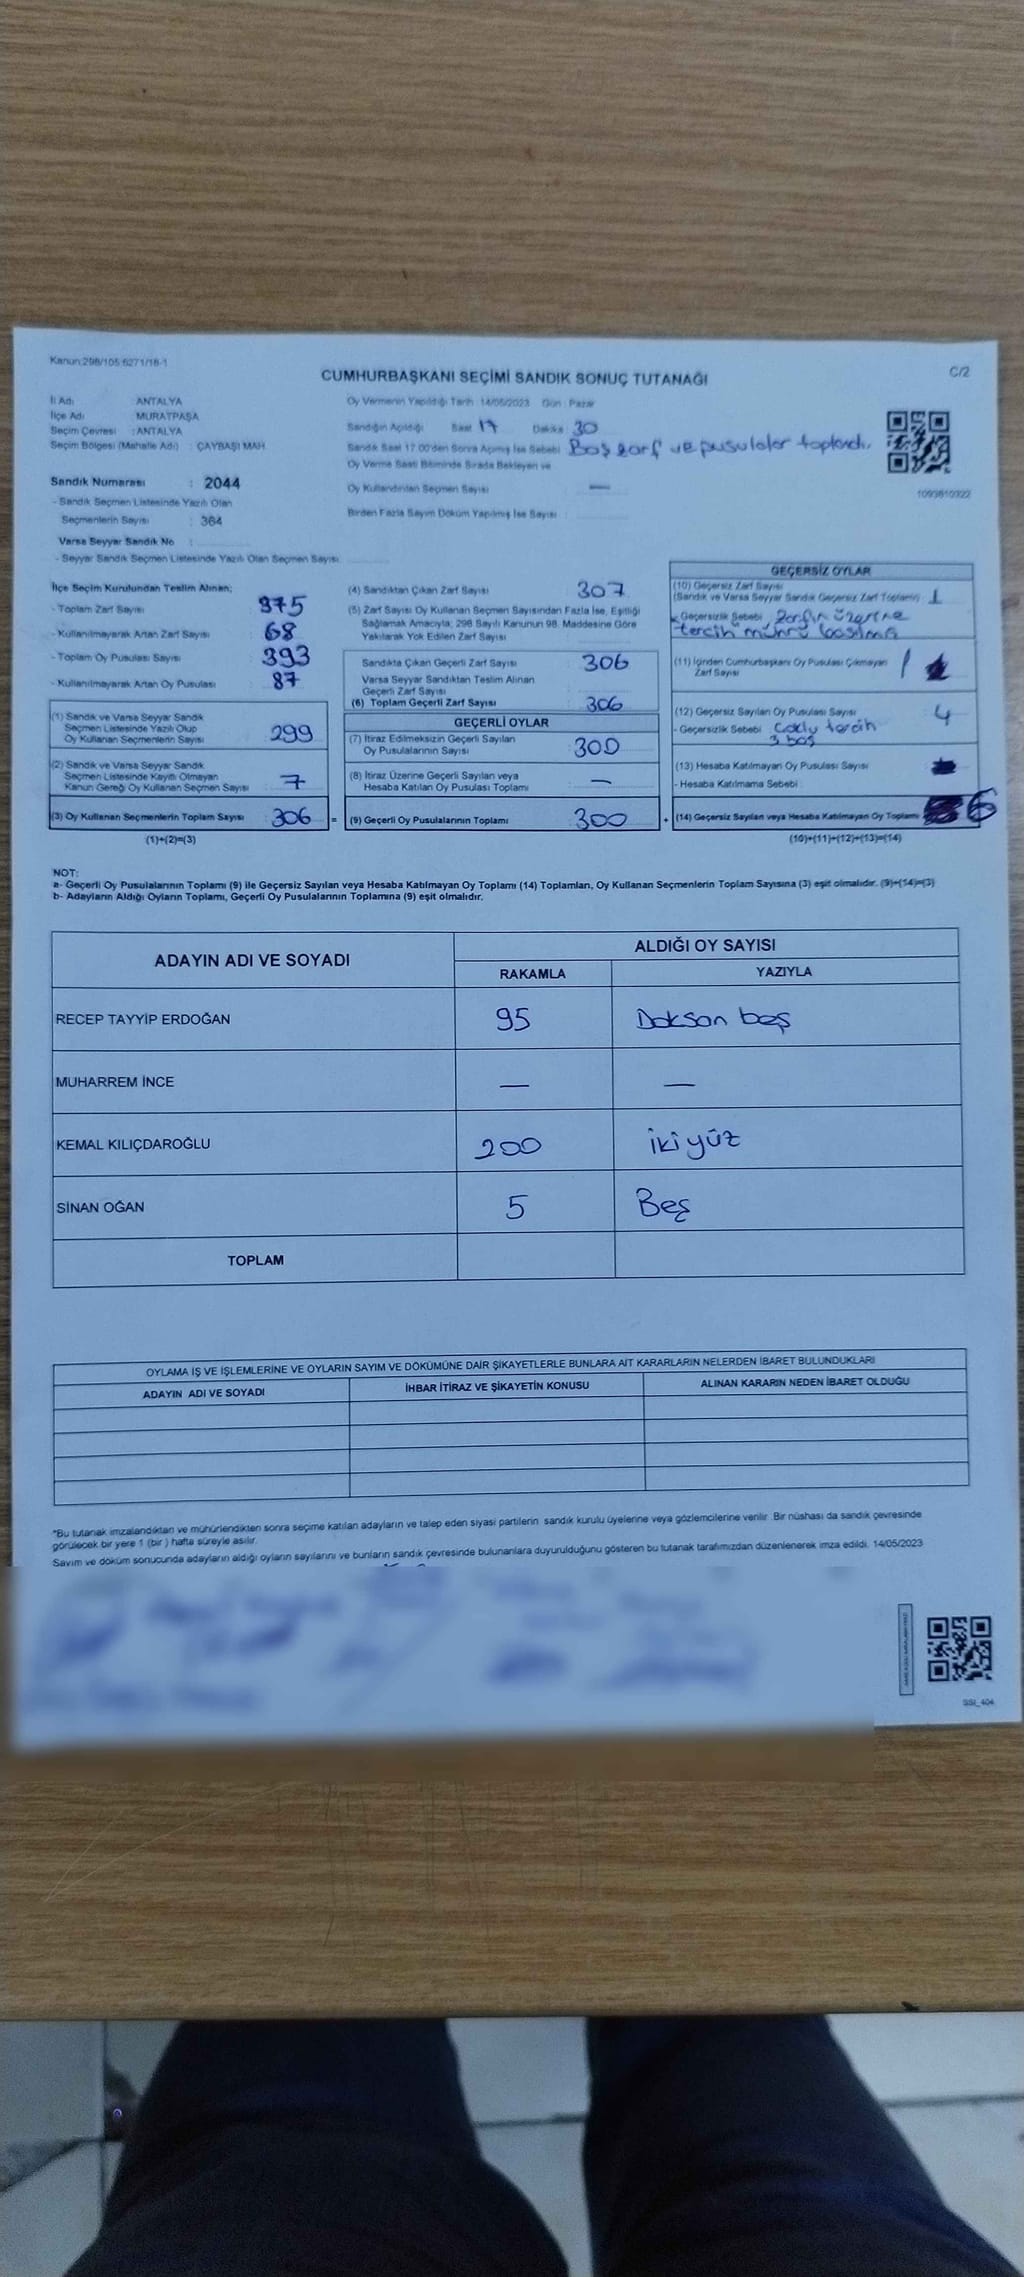 Kanun:298/105 6271/18-1
CUMHURBAŞKANI SEÇİMİ SANDIK SONUÇ TUTANAĞI
C/2
İl Adı : ANTALYA
İlçe Adı : MURATPAŞA
Seçim Çevresi : ANTALYA
Seçim Bölgesi (Mahalle Adı) : ÇAYBAŞI MAH.
Sandık Numarası : 2044
- Sandık Seçmen Listesinde Yazılı Olan
Seçmenlerin Sayısı : 364
Varsa Seyyar Sandık No :
- Seyyar Sandık Seçmen Listesinde Yazılı Olan Seçmen Sayısı:
Oy Vermenin Yapıldığı Tarih 14/05/2023 Gün : Pazar
Sandığın Açıldığı Saat 17 Dakika 30
Sandık Saat 17.00'den Sonra Açımış İse Sebebi Boş zarf ve pusulalar toplandı.
Oy Verme Saati Bitiminde Sırada Bekleyen ve
Oy Kullandırılan Seçmen Sayısı : —
Birden Fazla Sayım Döküm Yapılmış İse Sayısı :
1093810322
İlçe Seçim Kurulundan Teslim Alınan;
- Toplam Zarf Sayısı : 375
- Kullanılmayarak Artan Zarf Sayısı : 68
- Toplam Oy Pusulası Sayısı : 393
- Kullanılmayarak Artan Oy Pusulası : 87
(1) Sandık ve Varsa Seyyar Sandık
Seçmen Listesinde Yazılı Olup
Oy Kullanan Seçmenlerin Sayısı : 299
(2) Sandık ve Varsa Seyyar Sandık
Seçmen Listesinde Kayıtlı Olmayan
Kanun Gereği Oy Kullanan Seçmen Sayısı : 7
(3) Oy Kullanan Seçmenlerin Toplam Sayısı : 306 =
(1)+(2)=(3)
(4) Sandıktan Çıkan Zarf Sayısı : 307
(5) Zarf Sayısı Oy Kullanan Seçmen Sayısından Fazla İse, Eşitliği
Sağlamak Amacıyla; 298 Sayılı Kanunun 98. Maddesine Göre
Yakılarak Yok Edilen Zarf Sayısı :
Sandıkta Çıkan Geçerli Zarf Sayısı : 306
Varsa Seyyar Sandıktan Teslim Alınan
Geçerli Zarf Sayısı :
(6) Toplam Geçerli Zarf Sayısı : 306
GEÇERLİ OYLAR
(7) İtiraz Edilmeksizin Geçerli Sayılan
Oy Pusulalarının Sayısı : 300
(8) İtiraz Üzerine Geçerli Sayılan veya
Hesaba Katılan Oy Pusulası Toplamı : —
(9) Geçerli Oy Pusulalarının Toplamı : 300 +
GEÇERSİZ OYLAR
(10) Geçersiz Zarf Sayısı
(Sandık ve Varsa Seyyar Sandık Geçersiz Zarf Toplamı) : 1
- Geçersizlik Sebebi : Zarfın üzerine
tercih mührü basılmış
(11) İçinden Cumhurbaşkanı Oy Pusulası Çıkmayan
Zarf Sayısı : 1
(12) Geçersiz Sayılan Oy Pusulası Sayısı : 4
- Geçersizlik Sebebi : Çoklu tercih
3 boş
(13) Hesaba Katılmayan Oy Pusulası Sayısı :
- Hesaba Katılmama Sebebi :
(14) Geçersiz Sayılan veya Hesaba Katılmayan Oy Toplamı : 6
(10)+(11)+(12)+(13)=(14)
NOT:
a- Geçerli Oy Pusulalarının Toplamı (9) ile Geçersiz Sayılan veya Hesaba Katılmayan Oy Toplamı (14) Toplamları, Oy Kullanan Seçmenlerin Toplam Sayısına (3) eşit olmalıdır. (9)+(14)=(3)
b- Adayların Aldığı Oyların Toplamı, Geçerli Oy Pusulalarının Toplamına (9) eşit olmalıdır.
ADAYIN ADI VE SOYADI
ALDIĞI OY SAYISI
RAKAMLA YAZIYLA
RECEP TAYYİP ERDOĞAN 95 Doksan beş
MUHARREM İNCE — —
KEMAL KILIÇDAROĞLU 200 iki yüz
SİNAN OĞAN 5 Beş
TOPLAM
OYLAMA İŞ VE İŞLEMLERİNE VE OYLARIN SAYIM VE DÖKÜMÜNE DAİR ŞİKAYETLERLE BUNLARA AİT KARARLARIN NELERDEN İBARET BULUNDUKLARI
ADAYIN ADI VE SOYADI İHBAR İTİRAZ VE ŞİKAYETİN KONUSU ALINAN KARARIN NEDEN İBARET OLDUĞU
*Bu tutanak imzalandıktan ve mühürlendikten sonra seçime katılan adayların ve talep eden siyasi partilerin sandık kurulu üyelerine veya gözlemcilerine verilir. Bir nüshası da sandık çevresinde
görülecek bir yere 1 (bir ) hafta süreyle asılır.
Sayım ve döküm sonucunda adayların aldığı oyların sayılarını ve bunların sandık çevresinde bulunanlara duyurulduğunu gösteren bu tutanak tarafımızdan düzenlenerek imza edildi. 14/05/2023
SSI_404